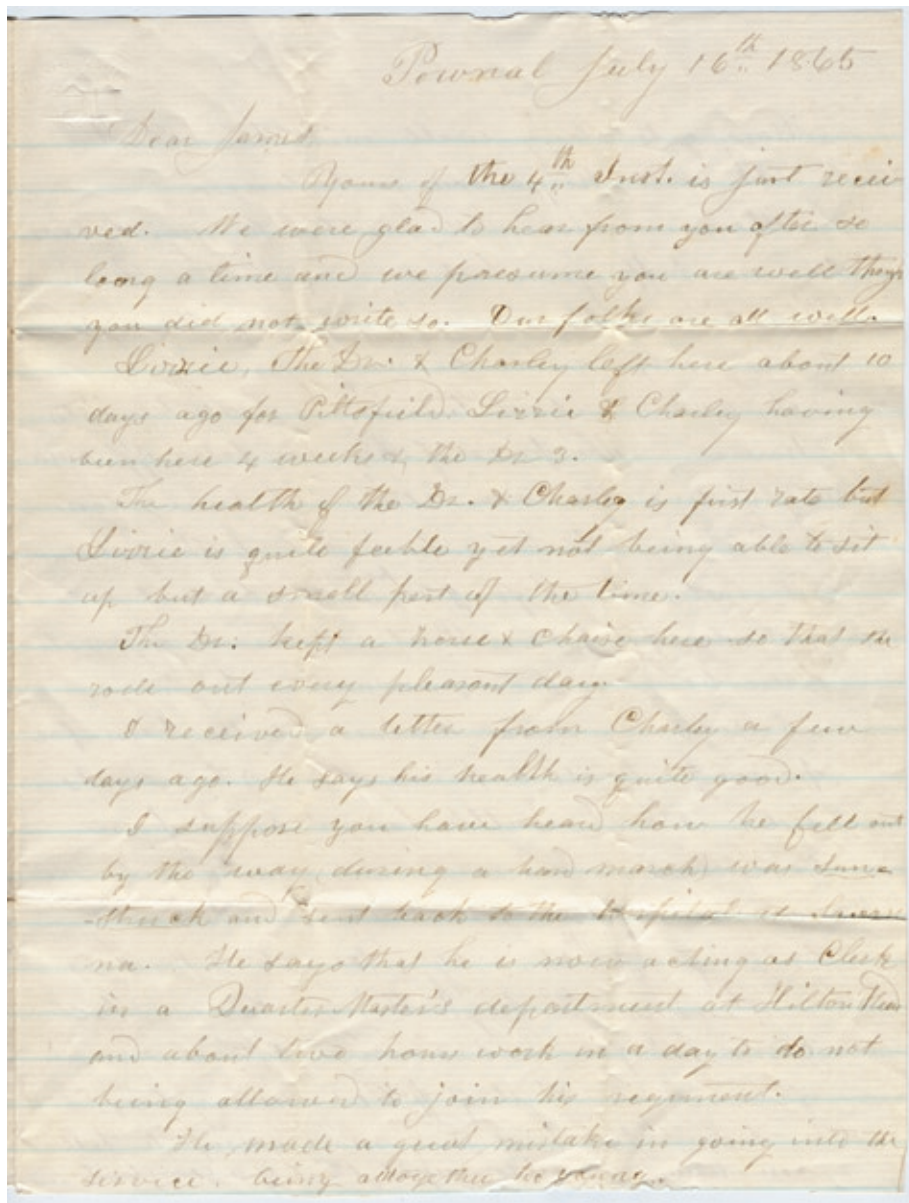 Pownal July 16th 1865
Dear James
Yours of the 4th Inst. is just recei
ved. We were glad to hear from you after so
long a time and we presume you are well though
you did not write so. Our folks are all well.
Lizzie, The Dr. & Charley left here about 10
days ago for Pittsfield. Lizzie & Charley having
been here 4 weeks & the Dr 3.
The health of the Dr. & Charley is first rate but
Lizzie is quite feeble yet not being able to sit
up but a small part of the time.
The Dr. kept a horse & Chaise here so that she
rode out every pleasant day.
I received a letter from Charley a few
days ago. He says his health is quite good.
I suppose you have heard how he fell out
by the way, during a hard march, was Sun-
-struck and sent back to the hospital at
na. He says that he is now acting as Clerk
in a Quarter Master's department at Hilton Head
and about two hours work in a day to do not
being allowed to join his regiment.
He made a great mistake in going into the
service. being altogether to young.